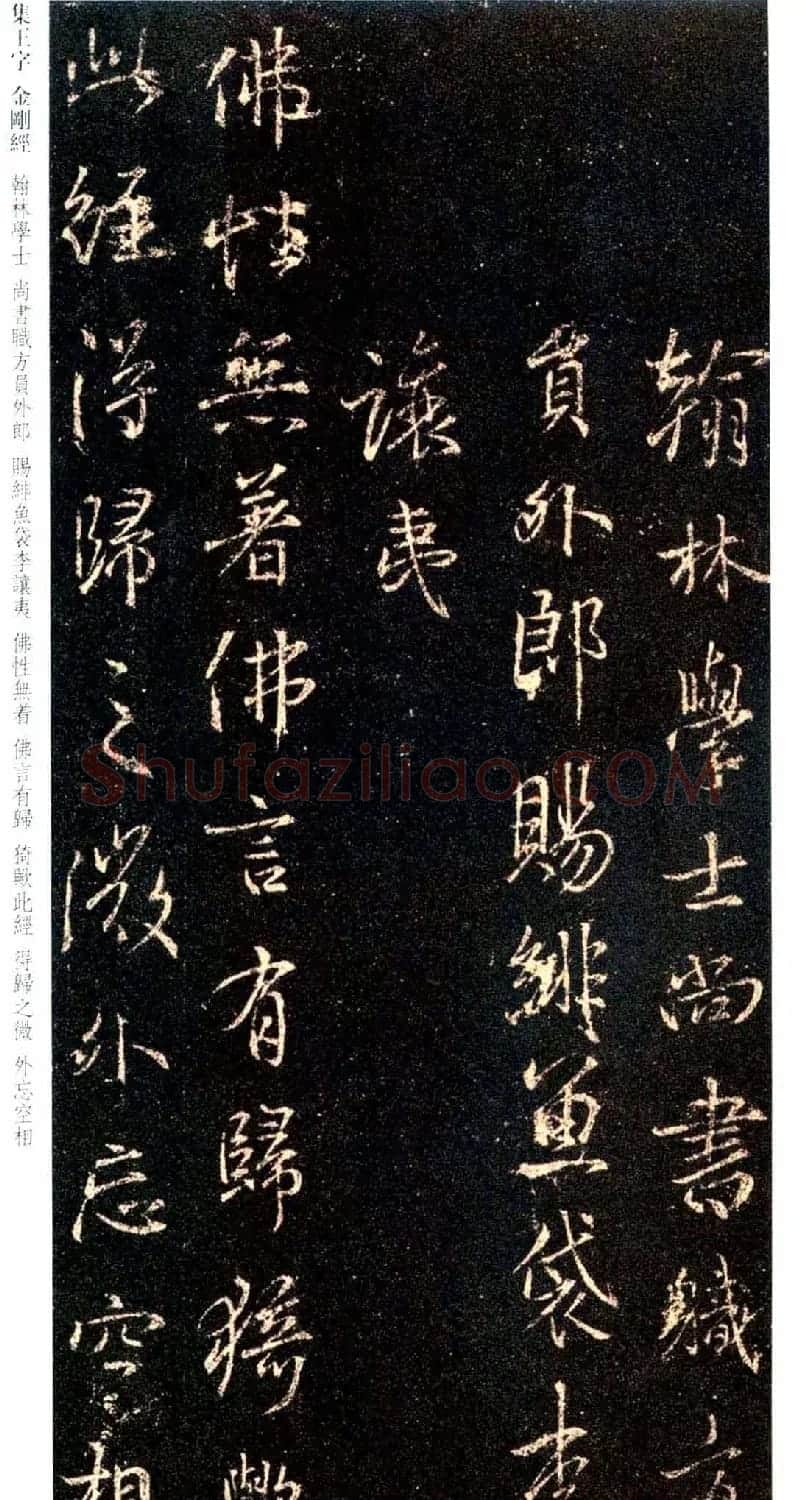 翰林學士尚書職方
員外郎賜緋魚袋李
讓夷
佛性無著佛言有歸猗歟
此經得歸之微外忘空相
集王字 金剛經 翰林學士 尚書職方員外郎 賜緋魚袋李讓夷 佛性無着 佛言有歸 猗歟此經 得歸之微 外忘空相
Shufaziliao.COM